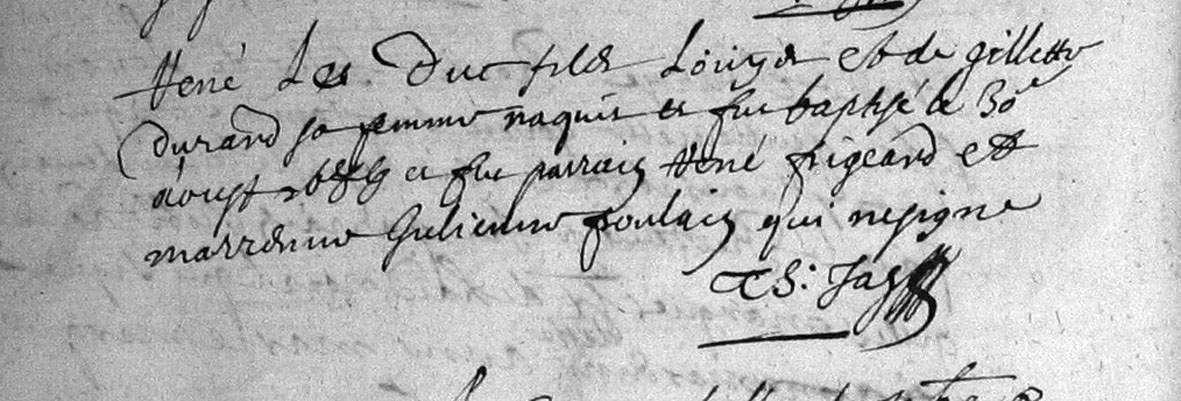 René Le Duc fils Louys et de gillette
durand sa femme naquit et fut baptisé le 30e
d'aoust et fut parrain René frigeard et
marrenne Gulienne poulain qui ne signe